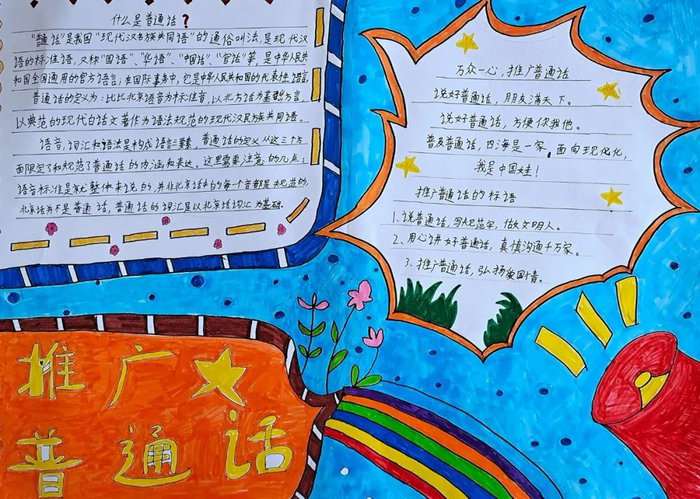 什么是普通话?
"普通话"是我国"现代汉民族共同语"的通俗叫法,是现代汉
语的标准语,又称"国语"、"华语"、"中国话"、"官话"等,是中华人民共
和国全国通用的官方语言,在国际事务中,它是中华人民共和国的代表性语言
普通话的定义为:以北京语音为标准音,以北方话为基础方言,
以典范的现代白话文著作为语法规范的现代汉民族共同语。
语音、词汇和语法是构成语言三要素,普通话的定义从这三个方
面限定了和规范了普通话的内涵和表达,这里需要注意的几点:
语音标准是就整体来说的,并非北京话中的每一个音都是规范的,
北京话并不是普通话,普通话的词汇是以北方话词汇为基础。
万众一心,推广普通话
说好普通话,朋友满天下。
说好普通话,方便你我他。
普及普通话,四海是一家。面向现代化,
我是中国娃!
推广普通话的标语
1、说普通话,写规范字,做文明人。
2、用心讲好普通话,真情沟通千万家。
3、推广普通话,弘扬爱国情。
推广
普通话